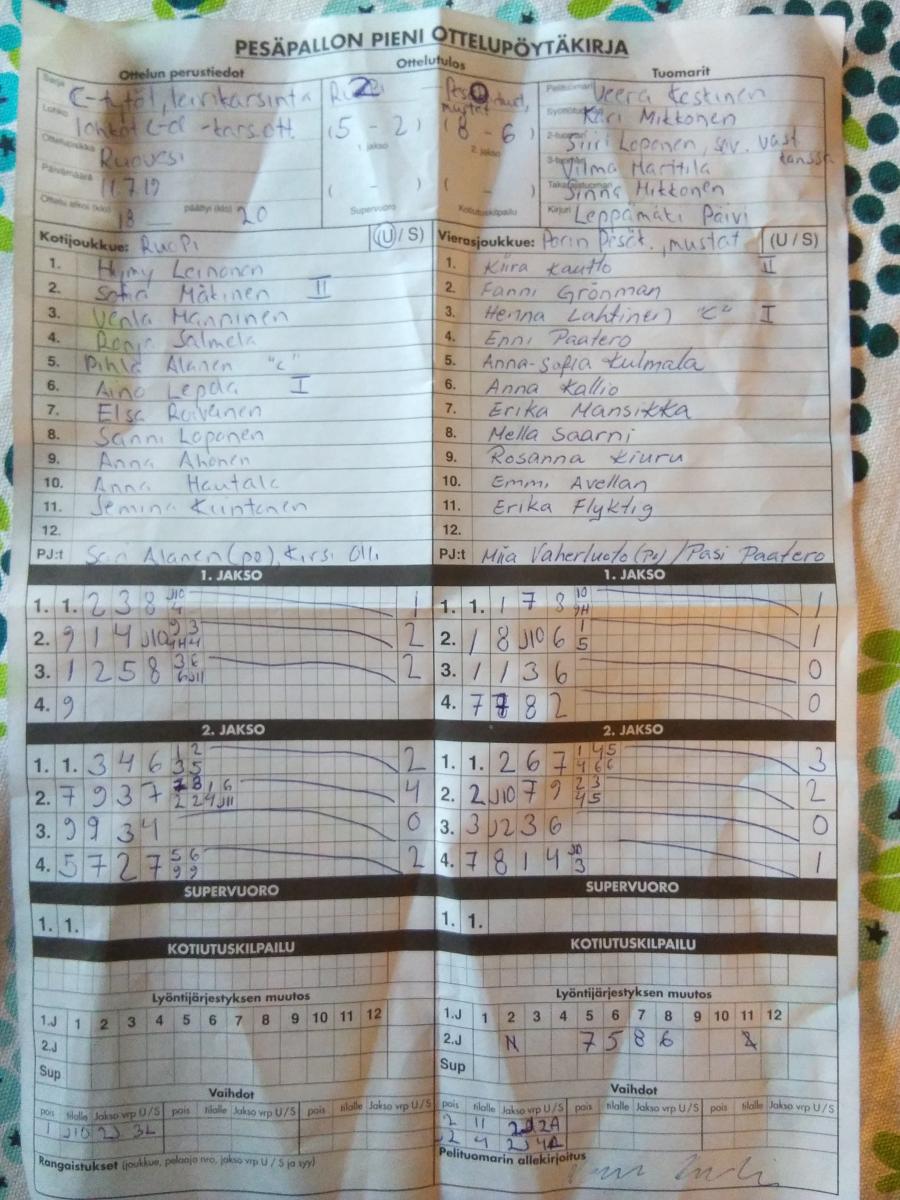 PESÄPALLON PIENI OTTELUPÖYTÄKIRJA
Ottelun perustiedot
Ottelutulos
Tuomarit
Sarja C-tytöt, leirikarsinta
Lohko lohkot C-d -kars.ott
Ottelupaikka Ruovesi
Päivämäärä 11.7.19
Ottelu alkoi (klo) 18 päättyi (klo) 20
2 0
(5 - 2) (8 - 6)
1. jakso 2. jakso
( - ) ( - )
Supervuoro Kotiutuskilpailu
Pelituomari Veera Keskinen
Kari Mikkonen
2-tuomari Siiri Loponen, sov. vast. kanssa
3-tuomari Vilma Marttila
Takarajatuomari Sinna Mikkonen
Kirjuri Leppämäki Päivi
Kotijoukkue: RuoPi (U / S)
1. Hymy Leinonen
2. Sofia Mäkinen II
3. Venla Manninen
4. Ronja Salmela
5. Pihla Alanen "C"
6. Aino Lepola I
7. Elsa
8. Sanni Loponen
9. Anna Ahonen
10. Anna Hautala
11. Jemina Kiintonen
12.
PJ:t Sari Alanen (po), Kirsi Olli
Vierasjoukkue: Porin Pesäk., mustat (U / S)
1. Kiira Kautto II
2. Fanni Grönman
3. Henna Lahtinen "C" I
4. Enni Paatero
5. Anna-Sofia Kulmala
6. Anna Kallio
7. Erika Mansikka
8. Mella Saarni
9. Rosanna Kiuru
10. Emmi Avellan
11. Erika Flyktig
12.
PJ:t Miia Vaherluoto (Po) / Pasi Paatero
1. JAKSO
1. 1. 2 3 8 J10 4 1
2. 9 1 4 J10 9 3 4H 4 2
3. 1 2 5 8 3 6 6 J11 2
4. 9
1. JAKSO
1. 1. 1 7 8 10 9H 1
2. 1 8 J10 6 1 5 1
3. 1 1 3 6 0
4. 7 7 8 2 0
2. JAKSO
1. 1. 3 4 6 1 2 3 5 2
2. 7 9 3 7 7 8 1 6 2 2 4 J11 4
3. 9 9 3 4 0
4. 5 7 2 7 5 6 9 9 2
2. JAKSO
1. 1. 2 6 7 1 4 5 4 6 6 3
2. 2 J10 7 9 2 3 4 5 2
3. 3 J2 3 6 0
4. 7 8 1 4 J10 3 1
SUPERVUORO
1. 1.
SUPERVUORO
1. 1.
KOTIUTUSKILPAILU
KOTIUTUSKILPAILU
Lyöntijärjestyksen muutos
1.J 1 2 3 4 5 6 7 8 9 10 11 12
2.J
Sup
Lyöntijärjestyksen muutos
1.J 1 2 3 4 5 6 7 8 9 10 11 12
2.J 7 5 8 6
Sup
Vaihdot
pois tilalle Jakso vrp U / S pois tilalle Jakso vrp U / S pois tilalle Jakso vrp U / S
1 J10 2J 3L
Vaihdot
pois tilalle Jakso vrp U / S pois tilalle Jakso vrp U / S pois tilalle Jakso vrp U / S
2 11 2J 2A
J2 4 2J 4A
Rangaistukset (joukkue, pelaaja nro, jakso vrp U / S ja syy)
Pelituomarin allekirjoitus